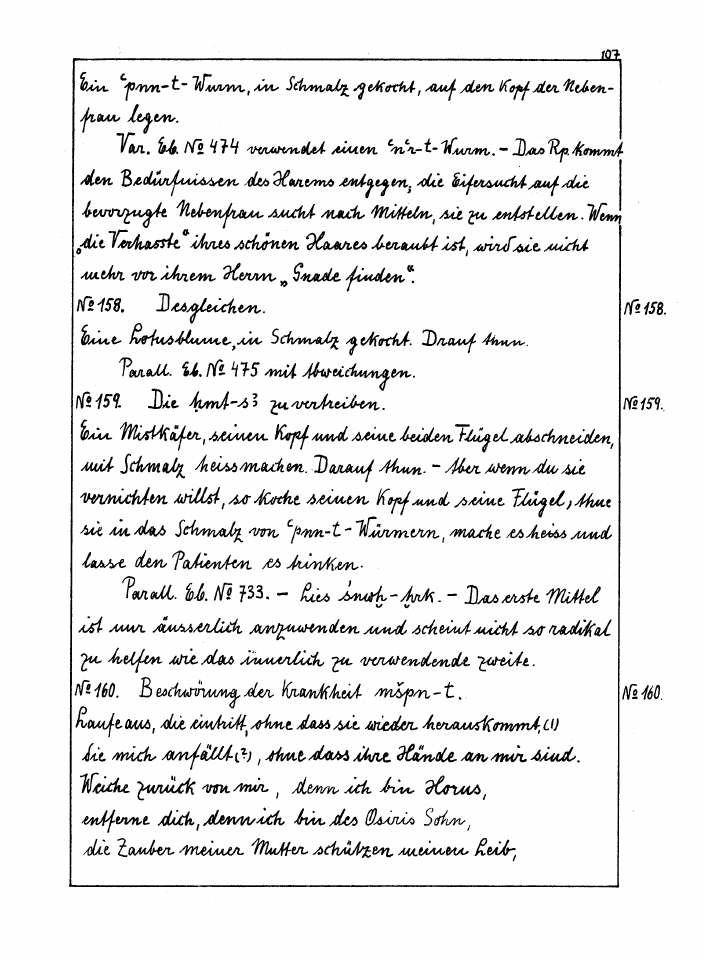 107
Ein ꜥpnn-t-Wurm, in Schmalz gekocht, auf den Kopf der Neben-
frau legen.
Var. Eb. № 474 verwendet einen ꜥnꜥr-t-Wurm. – Das Rp. kommt
den Bedürfnissen des Harems entgegen, die Eifersucht auf die
bevorzugte Nebenfrau sucht nach Mitteln, sie zu entstellen. Wenn
„die Verhasste“ ihres schönen Haares beraubt ist, wird sie nicht
mehr vor ihrem Herrn „Gnade finden“.
№ 158. Desgleichen. № 158.
Eine Lotusblume, in Schmalz gekocht. Drauf thun.
Parall. Eb. № 475 mit Abweichungen.
№ 159. Die ḥmt-sꜣ zu vertreiben. № 159.
Ein Mistkäfer, seinen Kopf und seine beiden Flügel abschneiden,
mit Schmalz heiss machen. Darauf thun. – Aber wenn du sie
vernichten willst, so koche seinen Kopf und seine Flügel, thue
sie in das Schmalz von ꜥpnn-t-Würmern, mache es heiss und
lasse den Patienten es trinken.
Parall. Eb. № 733. – Lies śnwḫ-ḫrk. – Das erste Mittel
ist nur äusserlich anzuwenden und scheint nicht so radikal
zu helfen wie das innerlich zu verwendende zweite.
№ 160. Beschwörung der Krankheit mšpn-t. № 160.
Laufe aus, die eintritt, ohne dass sie wieder herauskommt, (1)
die mich anfällt (?), ohne dass ihre Hände an mir sind.
Weiche zurück von mir, denn ich bin Horus,
entferne dich, denn ich bin des Osiris Sohn,
die Zauber meiner Mutter schützen meinen Leib,